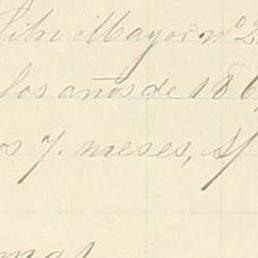 Libro Mayor nº 2
los años de 186
os 7. meses, s/